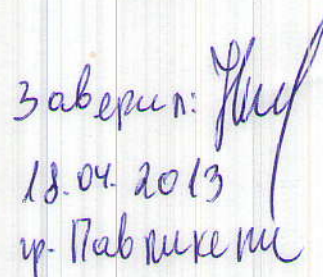 Заверил:
18.04.2013
гр. Павликени